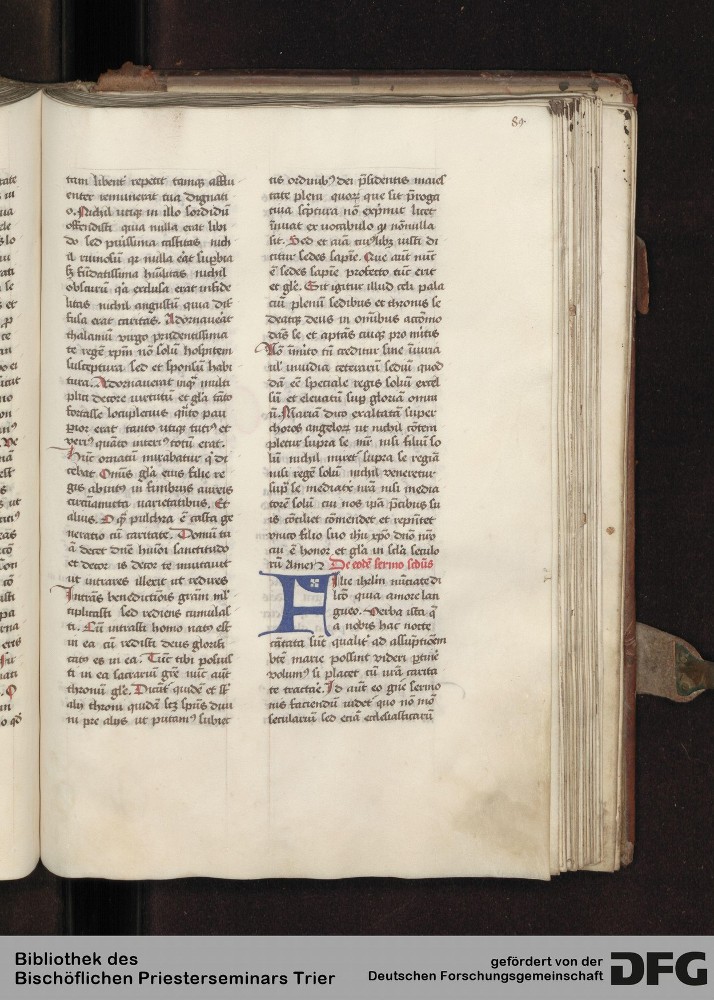 89.
tam libent̄ repetit tamqꝫ afflu
enter remunerat tua dignati
o. Nichil utiqꝫ in illo sordidū
offendisti quia nulla erat libi
do sed puissima castitas nich
il ruinosū qꝛ nulla eāt suꝑbia
sꝫ fūdatissima hūilitas nichil
obscurū q'a exclusa erat infide
litas nichil angustū quia dif
fusa erat caritas. Adornaueāt
thalamū virgo prudentissima
te regē xp̄m nō solū hospitem
susceptura sed et sponsū habi
tura. Adornauerat inqꝫ multi
plici decore uirtutū et gl'a tāto
fortasse locupletius qūto pau
erat tanto utiqꝫ et
quāto totū erat.
Hūc ornatū mirabatur q' di
cebat Om̄is gl'a eius filie re
gis abint' in fimbrijs aureis
circūamicta uarietatibus. Et
alius. O q̄ pulchra ē casta ge
neratio cū caritate. Domū tu
ā decet dn̄e sanctitudo
et decor is decor te inuitauit
ut intrares illexit ut redires
Intrās benedictiōnis grām ml'
tiplicasti sed rediens cumulas
ti. Cū intrasti homo nat' est
in ea cū redisti deus glorifi
cato es in ea. Tūc tibi posuis
ti in ea sacrariū grē nūc aūt
thronū gl'e. Dicūt' quidē et sūt
alij throni quidā scꝫ sp̄us diui
ni pre alijs ut putam' subiec
tis ordinibꝫ dei p̄sidentis maies
tate pleni quorꝫ que sit p̄roga
tiua sc̄ptura nō exp̄mit licet
īnuat ex uocabulo q' nōnulla
sit. Sed et aīa cui'libꝫ iusti di
citur sedes sapīe. Que aūt nūc
ē sedes sapīe profecto tūc erit
et gl'e. Sit igitur illud celi pala
ciū plenū sedibus et thronis se
deatqꝫ deus in om̄ibus accōmo
dās se et aptās cuiqꝫ pro m̄itis
tū creditur sine iniuria
uel inuidia ceterarū sediū quod
dā eē speciale regis soliū excel
sū et eleuatū sup gloriā omniu
ū. Mariā dico exaltatā super
choros angelorꝫ ut nichil cōtem
pletur supra se m̄r nisi filiū so
lū nichil miret' supra se regīā
nisi regē solū nichil veneretur
sup se mediatˣ nr̄a nisi media
torē solū cui nos ip̄a p̄cibus su
is cōciliet cōmendet et rep̄ntet
vnico filio suo ih̄u xp̄o dn̄o nr̄o
cui ē honor et gl'a in sc̄la seculo
rū Amen De eodē sermo sc̄dus
Filie ih'rlm nūciate di
lc̄o quia amore lan
gueo. Verba ista q̄
a nobis hac nocte
cātata sūt qualit' ad assūptiōem
btē marie possint videri ꝑtinē
volum' si placet cū ur̄a carita
te tractāe. Id aūt eo gn̄e sermo
nis faciendū uidet' quo nō mō
seculariū sed etiā ecclesiasticarū
Bibliothek des
Bischöflichen Priesterseminars Trier
gefördert von der
Deutschen Forschungsgemeinschaft
DFG